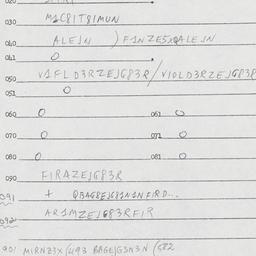 030 M1C8IT8IMUN
040 ALEJN ) F1NZE5XQALEJN
041 O
050 V1FLD3RZEJG83R / VIOLD3RZEJG83R
051 O
060 O 061 O
070 O 071 O
080 O 081 O
090 FIRAZEJG83R
091 + QBAG8EJG81N1NFIRD...
092 AR1MZEJG83RFIR
901 MIRNZ3X /493 BAGEJG3N3N /582